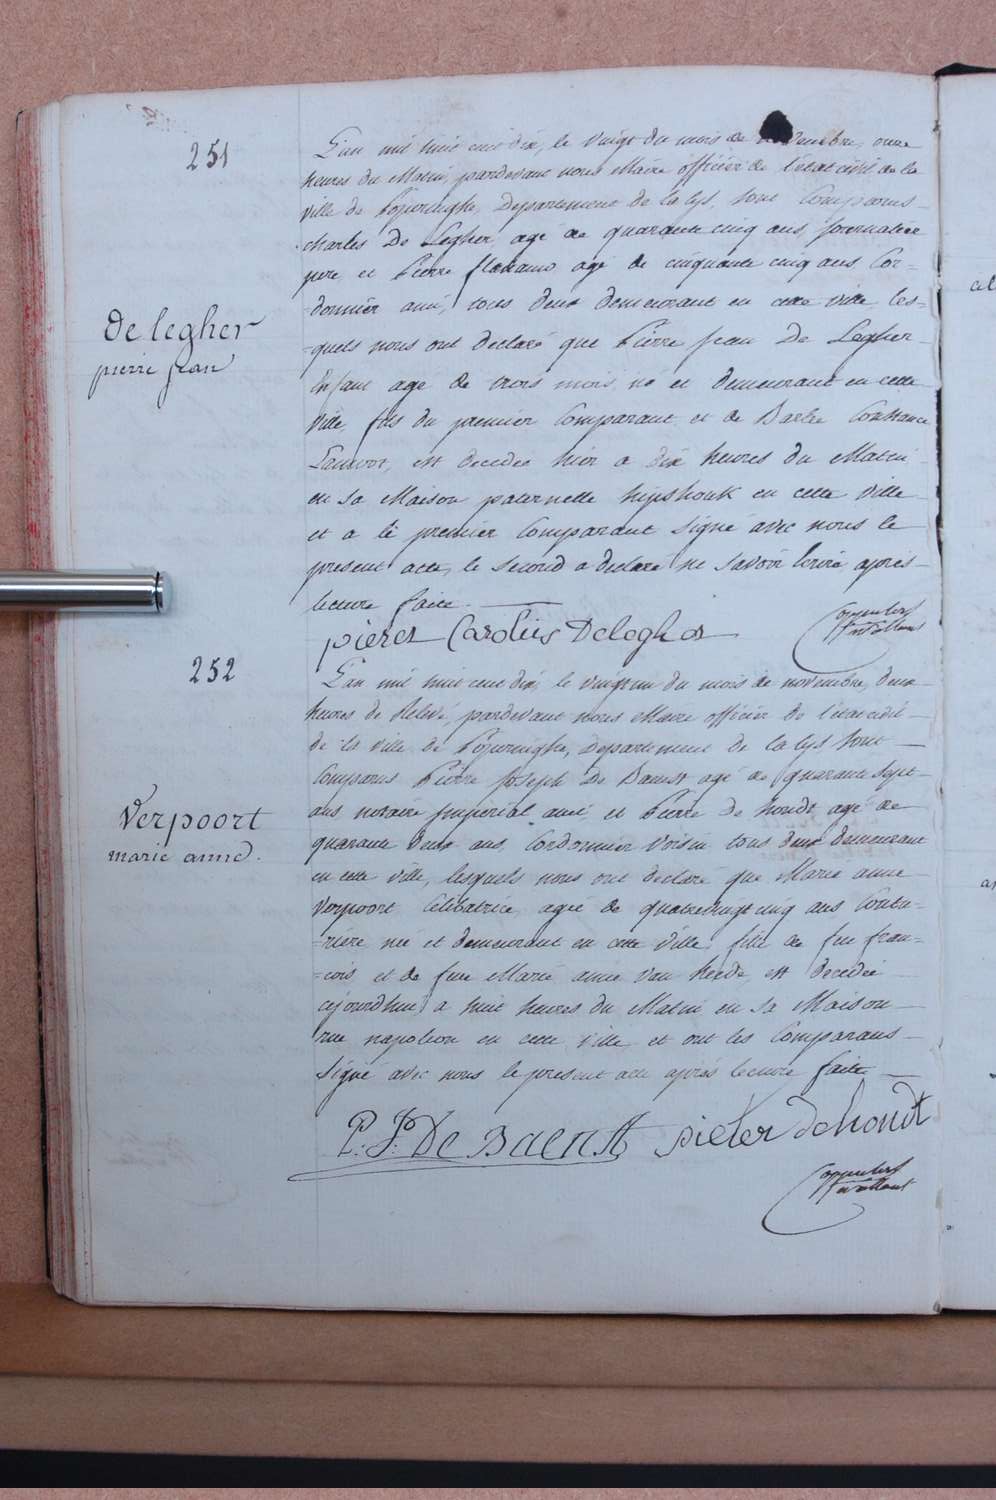 251
L'an mil huit cent dix, le vingt du mois de novembre, onze
heures du Matin, pardevant nous Maire officier de l'état civil de la
ville de Poperinghe, Departement de la lys, sont Comparus
charles De Legher, agé de quarante cinq ans, journalier
pere, et Pierre agé de cinquante cinq ans Cor=
=donnier ami, tous deux demeurant en cette ville, les=
=quels nous ont declaré que Pierre jean De Legher
de legher
pierre jean
Enfant agé de trois mois, né et demeurant en cette
ville, fils du premier Comparant et de Barbe Constance
est decedée hier a dix heures du Matin
en sa Maison paternelle en cette ville
et a le premier Comparant signé avec nous le
present acte, le second a declaré ne savoir Ecrire après
lecture faite.
pieter Carolus Delegher
252
L'an mil huit cent dix, le vingt un du mois de novembre, deux
heures de Relevé, pardevant nous Maire officier de l'état civil
de la ville de Poperinghe, Departement de la lys sont
Comparus Pierre Joseph De Baenst agé de quarante sept
ans notaire Imperial ami, et Pierre De hondt agé de
Verpoort
marie anne.
quarante deux ans Cordonnier voisin tous deux demeurant
en cette ville, lesquels nous ont declaré que Marie anne
Verpoort Celibatrice, agée de quatrevingt cinq ans Coutu=
=rière née et demeurant en cette ville, fille de feu fran=
=cois, et de feue Marie anne van heede, est decedée
cejourdhui a huit heures du Matin en sa Maison
rue napoleon en cette ville et ont les Comparans
Signé avec nous le present acte après lecture faite
P. J. De Baenst pieter dehondt